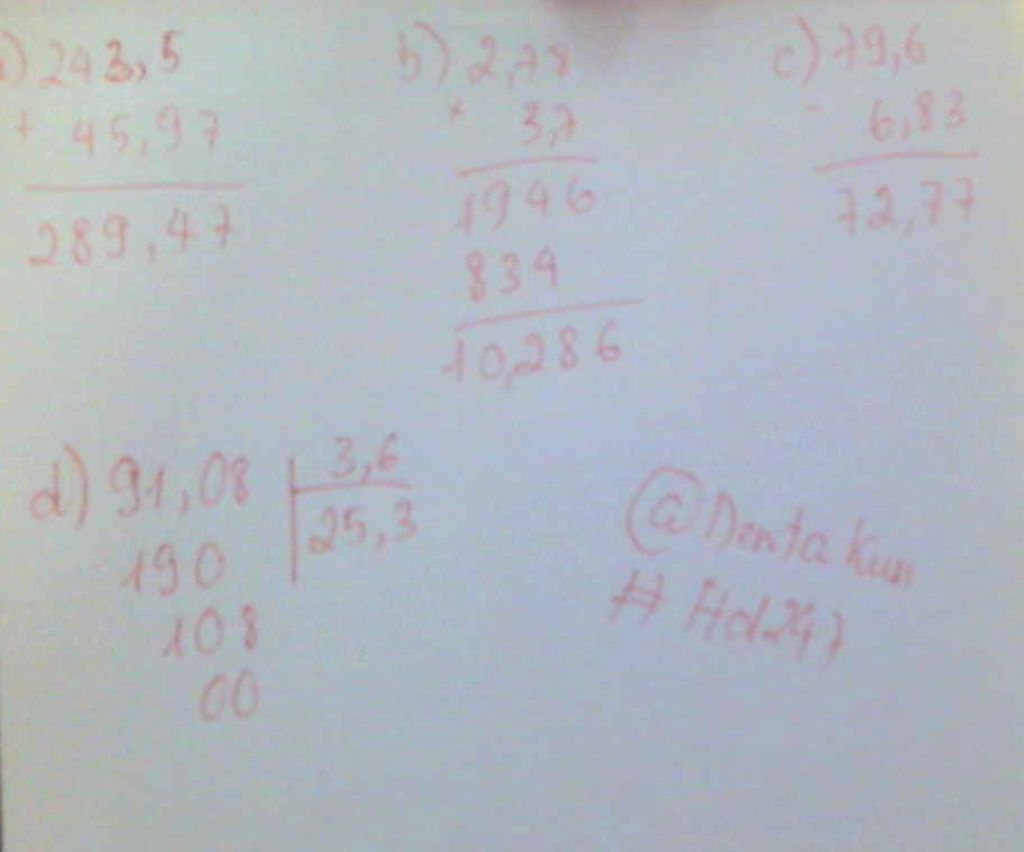 a) 243,5
+ 45,97
289,47
b) 2,78
× 3,7
1946
834
10,286
c) 79,6
- 6,83
72,77
d) 91,08 3,6
190 25,3
108
00
@Dentakun
# Hd247